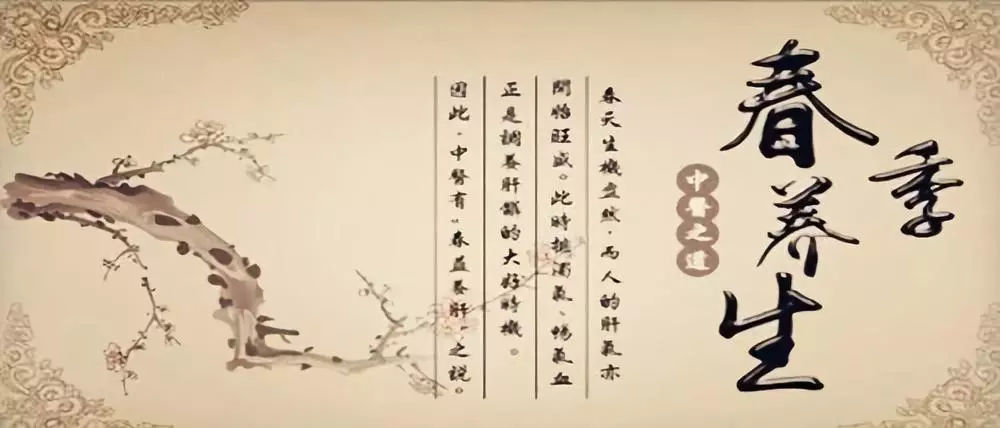 春季养生
中醫之道
春天生機盎然，而人的肝氣亦
開始旺盛。此時排濁氣、暢氣血
正是調養肝臟的大好時機。
因此，中醫有“春益養肝”之說。